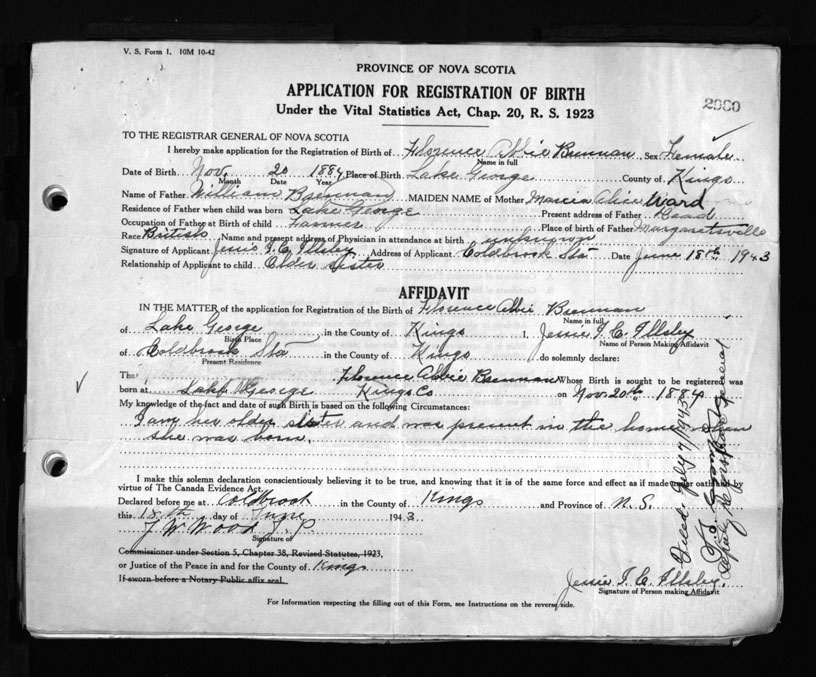 V. S. Form 1. 10M 10-42
PROVINCE OF NOVA SCOTIA
APPLICATION FOR REGISTRATION OF BIRTH
Under the Vital Statistics Act, Chap. 20, R. S. 1923
2960
TO THE REGISTRAR GENERAL OF NOVA SCOTIA
I hereby make application for the Registration of Birth of Florence Abbie Brennan Sex Female
Name in full
Date of Birth Nov. 20 1884 Place of Birth Lake George County of Kings
Month Date Year
Name of Father William Brennan MAIDEN NAME of Mother Marcia Alice Ward
Residence of Father when child was born Lake George Present address of Father Dead
Occupation of Father at Birth of child Farmer Place of birth of Father Margaretsville
Race British Name and present address of Physician in attendance at birth unknown
Signature of Applicant Jessie I. C. Illsley Address of Applicant Coldbrook Sta Date June 18th 1943
Relationship of Applicant to child Older sister
AFFIDAVIT
IN THE MATTER of the application for Registration of the Birth of Florence Abbie Brennan
Name in full
of Lake George in the County of Kings I, Jessie I. C. Illsley
Birth Place Name of Person Making Affidavit
of Coldbrook Sta in the County of Kings do solemnly declare:
Present Residence
Tha Florence Abbie Brennan Whose Birth is sought to be registered was
born at Lake George Kings Co on Nov. 20th 1884
My knowledge of the fact and date of such Birth is based on the following Circumstances:
I am her older sister and was present in the home when
she was born.
I make this solemn declaration conscientiously believing it to be true, and knowing that it is of the same force and effect as if made under oath by
virtue of The Canada Evidence Act.
Declared before me at Coldbrook in the County of Kings and Province of N. S.
this 18th day of June 1943
J W Wood J. P.
Signature of
Commissioner under Section 5, Chapter 38, Revised Statutes, 1923,
or Justice of the Peace in and for the County of Kings
If sworn before a Notary Public affix seal.
Jessie I. C. Illsley.
Signature of Person making Affidavit
For Information respecting the filling out of this Form, see Instructions on the reverse side.
Filed July 7/1943
Deputy Registrar General